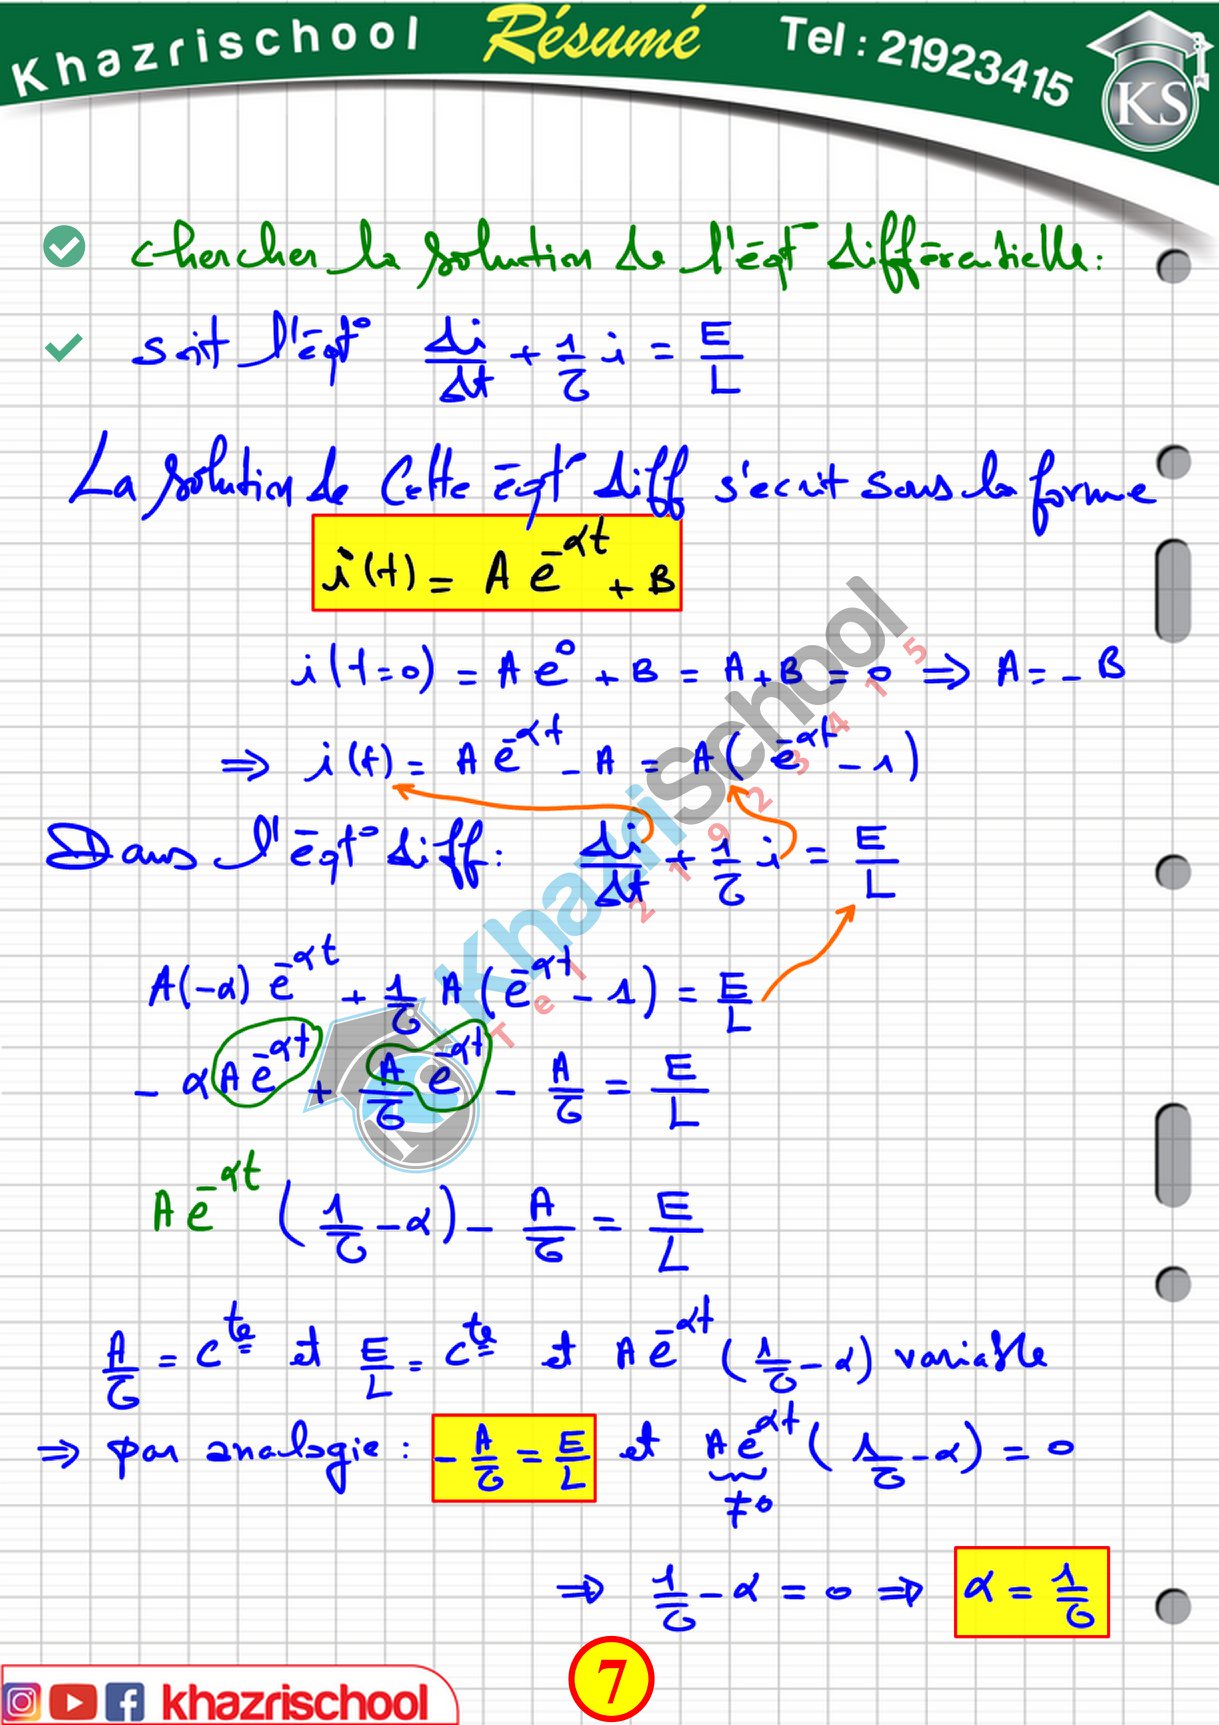 Khazrischool Résumé Tel : 21923415
KS
chercher la solution de l'éqt° différentielle :
soit l'éqt° di/dt + 1/τ i = E/L
La solution de cette éqt° diff s'ecrit sous la forme
i(t) = A e^-αt + B
i(t=0) = A e^0 + B = A + B = 0 ⇒ A = - B
⇒ i(t) = A e^-αt - A = A( e^-αt - 1)
Dans l'éqt° diff : di/dt + 1/τ i = E/L
A(-α) e^-αt + 1/τ A(e^-αt - 1) = E/L
- αA e^-αt + A/τ e^-αt - A/τ = E/L
A e^-αt (1/τ - α) - A/τ = E/L
A/τ = c^te et E/L = c^te et A e^-αt (1/τ - α) variable
⇒ par analogie : - A/τ = E/L et A e^-αt (1/τ - α) = 0
≠ 0
⇒ 1/τ - α = 0 ⇒ α = 1/τ
KhazriSchool
Tel 21923415
KS
7
khazrischool